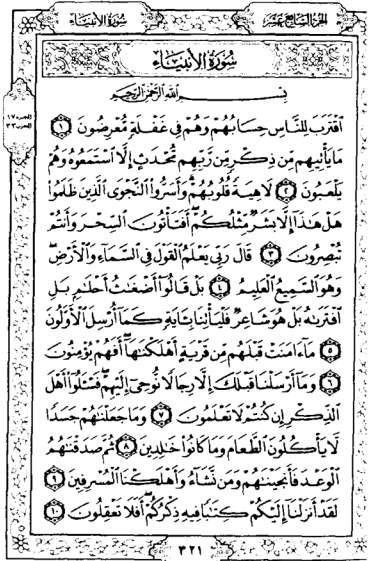 الجزء السابع عشر
سورة الأنبياء
الجزء ١٧
الحزب ٣٣
سُورَةُ الأَنبِيَاء
بِسْمِ اللَّهِ الرَّحْمَٰنِ الرَّحِيمِ
ٱقْتَرَبَ لِلنَّاسِ حِسَابُهُمْ وَهُمْ فِى غَفْلَةٍ مُّعْرِضُونَ ۝١
مَا يَأْتِيهِم مِّن ذِكْرٍ مِّن رَّبِّهِم مُّحْدَثٍ إِلَّا ٱسْتَمَعُوهُ وَهُمْ
يَلْعَبُونَ ۝٢ لَاهِيَةً قُلُوبُهُمْ وَأَسَرُّوا۟ ٱلنَّجْوَى ٱلَّذِينَ ظَلَمُوا۟
هَلْ هَٰذَآ إِلَّا بَشَرٌ مِّثْلُكُمْ أَفَتَأْتُونَ ٱلسِّحْرَ وَأَنتُمْ
تُبْصِرُونَ ۝٣ قَالَ رَبِّى يَعْلَمُ ٱلْقَوْلَ فِى ٱلسَّمَآءِ وَٱلْأَرْضِ
وَهُوَ ٱلسَّمِيعُ ٱلْعَلِيمُ ۝٤ بَلْ قَالُوٓا۟ أَضْغَٰثُ أَحْلَٰمٍۭ بَلِ
ٱفْتَرَىٰهُ بَلْ هُوَ شَاعِرٌ فَلْيَأْتِنَا بِـَٔايَةٍ كَمَآ أُرْسِلَ ٱلْأَوَّلُونَ
۝٥ مَآ ءَامَنَتْ قَبْلَهُم مِّن قَرْيَةٍ أَهْلَكْنَٰهَآ أَفَهُمْ يُؤْمِنُونَ
۝٦ وَمَآ أَرْسَلْنَا قَبْلَكَ إِلَّا رِجَالًا نُّوحِىٓ إِلَيْهِمْ فَسْـَٔلُوٓا۟ أَهْلَ
ٱلذِّكْرِ إِن كُنتُمْ لَا تَعْلَمُونَ ۝٧ وَمَا جَعَلْنَٰهُمْ جَسَدًا
لَّا يَأْكُلُونَ ٱلطَّعَامَ وَمَا كَانُوا۟ خَٰلِدِينَ ۝٨ ثُمَّ صَدَقْنَٰهُمُ
ٱلْوَعْدَ فَأَنجَيْنَٰهُمْ وَمَن نَّشَآءُ وَأَهْلَكْنَا ٱلْمُسْرِفِينَ ۝٩
لَقَدْ أَنزَلْنَآ إِلَيْكُمْ كِتَٰبًا فِيهِ ذِكْرُكُمْ أَفَلَا تَعْقِلُونَ ۝١٠
٣٢١